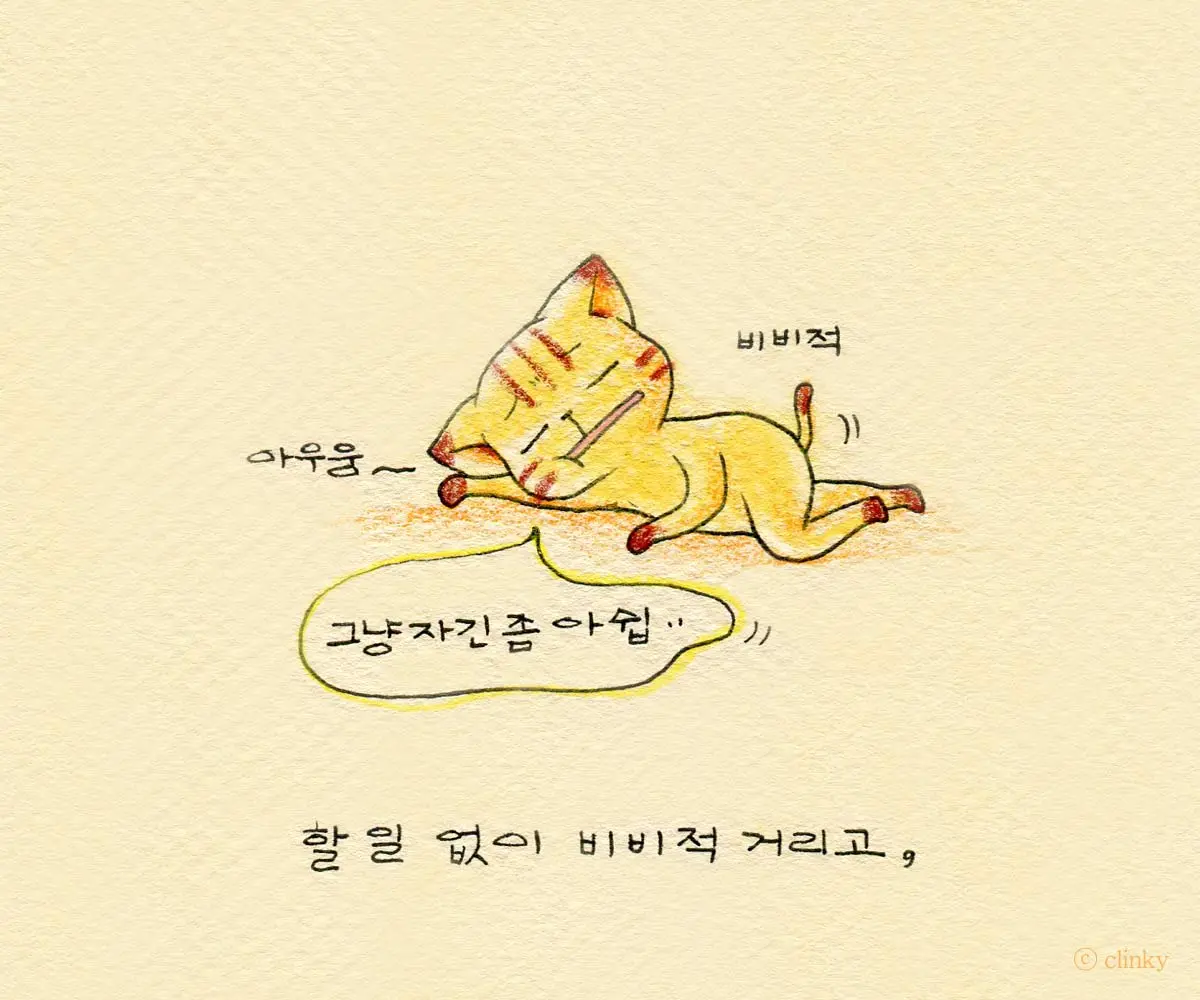 비비적
아우움~
그냥 자긴 좀 아쉽..
할 일 없이 비비적 거리고,
ⓒ clinky